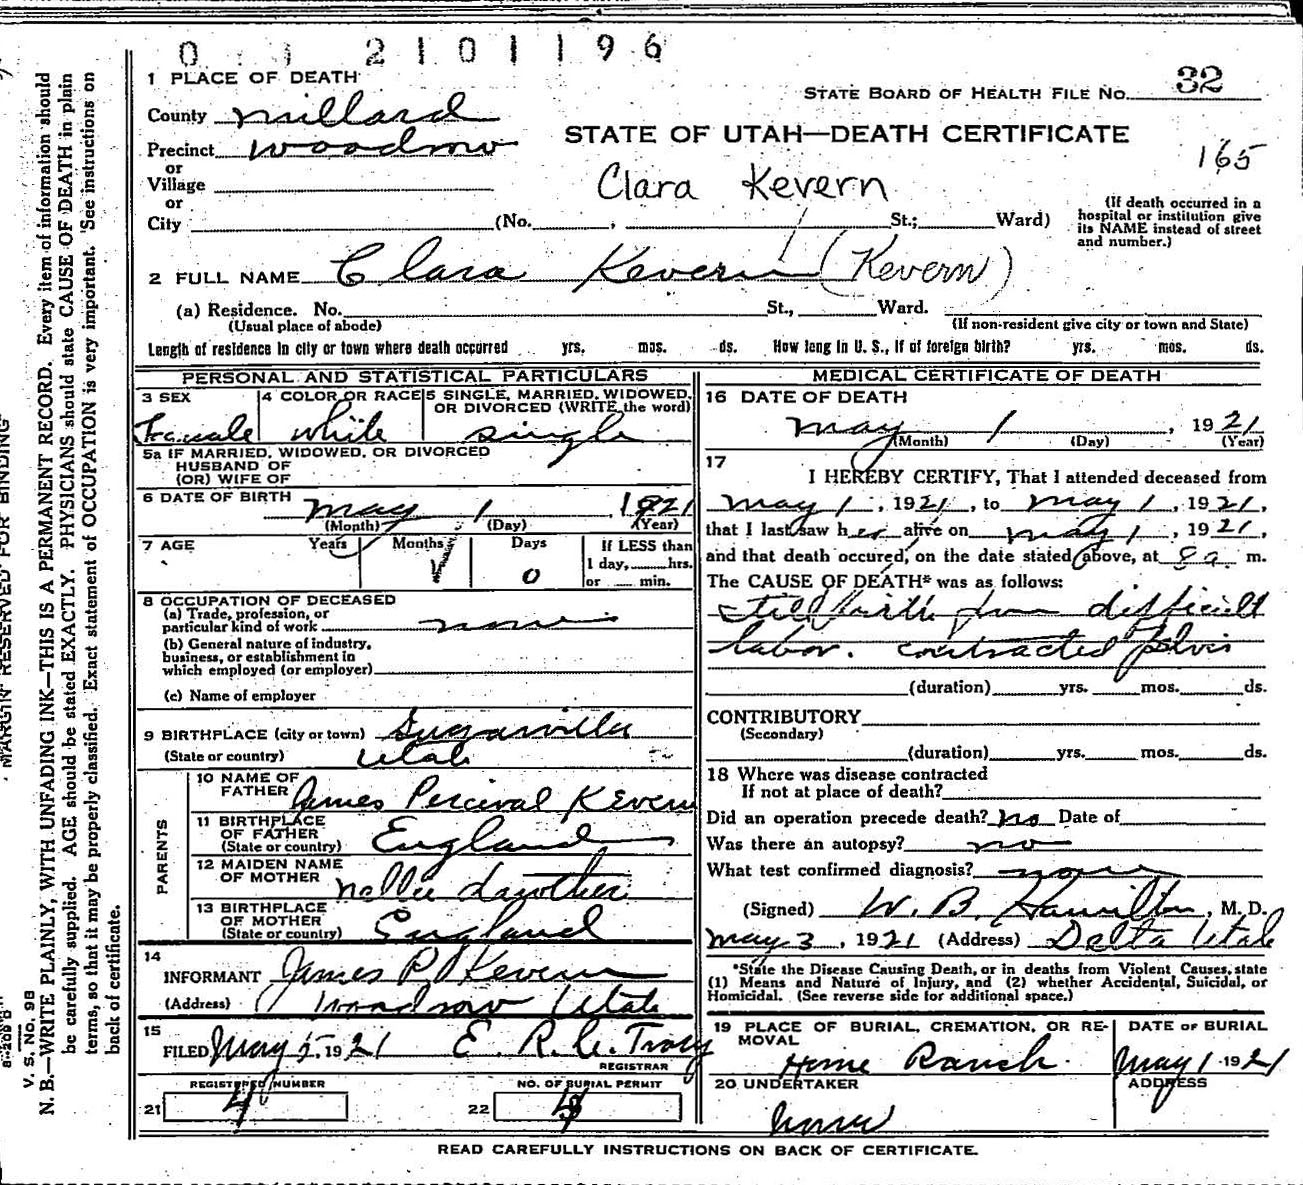 2101196
1 PLACE OF DEATH
STATE BOARD OF HEALTH FILE NO. 32
County Millard
STATE OF UTAH—DEATH CERTIFICATE
Precinct Woodrow
165
or
Village
Clara Kevern
or
City (No. , St.; Ward)
(If death occurred in a hospital or institution give its NAME instead of street and number.)
2 FULL NAME Clara Kevern (Kevern)
(a) Residence. No. St., Ward.
(Usual place of abode) (If non-resident give city or town and State)
Length of residence in city or town where death occurred yrs. mos. ds. How long in U. S., if of foreign birth? yrs. mos. ds.
PERSONAL AND STATISTICAL PARTICULARS
3 SEX
Female
4 COLOR OR RACE
white
5 SINGLE, MARRIED, WIDOWED, OR DIVORCED (WRITE the word)
single
5a IF MARRIED, WIDOWED, OR DIVORCED
HUSBAND OF
(OR) WIFE OF
6 DATE OF BIRTH
May 1 1921
(Month) (Day) (Year)
7 AGE Years Months Days
0
If LESS than
1 day, hrs.
or min.
8 OCCUPATION OF DECEASED
(a) Trade, profession, or
particular kind of work none
(b) General nature of industry,
business, or establishment in
which employed (or employer)
(c) Name of employer
9 BIRTHPLACE (city or town) Sugarville
(State or country) Utah
PARENTS
10 NAME OF
FATHER James Percival Kevern
11 BIRTHPLACE
OF FATHER
(State or country) England
12 MAIDEN NAME
OF MOTHER Nellie
13 BIRTHPLACE
OF MOTHER
(State or country) England
14
INFORMANT James P Kevern
(Address) Woodrow Utah
15
FILED May 5 1921 E. R. Tracy
REGISTRAR
REGISTERED NUMBER
21 4
NO. OF BURIAL PERMIT
22
MEDICAL CERTIFICATE OF DEATH
16 DATE OF DEATH
May 1, 1921
(Month) (Day) (Year)
17
I HEREBY CERTIFY, That I attended deceased from
May 1, 1921, to May 1, 1921,
that I last saw her alive on May 1, 1921,
and that death occured, on the date stated above, at 8 a. m.
The CAUSE OF DEATH* was as follows:
Stillbirth from difficult
labor. contracted pelvis
(duration) yrs. mos. ds.
CONTRIBUTORY
(Secondary)
(duration) yrs. mos. ds.
18 Where was disease contracted
If not at place of death?
Did an operation precede death? no Date of
Was there an autopsy? no
What test confirmed diagnosis? none
(Signed) W. B. Hamilton, M. D.
May 3, 1921 (Address) Delta Utah
*State the Disease Causing Death, or in deaths from Violent Causes, state
(1) Means and Nature of Injury, and (2) whether Accidental, Suicidal, or
Homicidal. (See reverse side for additional space.)
19 PLACE OF BURIAL, CREMATION, OR RE-
MOVAL
Home Ranch
DATE OF BURIAL
May 1 1921
20 UNDERTAKER
none
ADDRESS
READ CAREFULLY INSTRUCTIONS ON BACK OF CERTIFICATE.
MARGIN RESERVED FOR BINDING
V. S. No. 98
N. B.—WRITE PLAINLY, WITH UNFADING INK—THIS IS A PERMANENT RECORD. Every item of information should
be carefully supplied. AGE should be stated EXACTLY. PHYSICIANS should state CAUSE OF DEATH in plain
terms, so that it may be properly classified. Exact statement of OCCUPATION is very important. See instructions on
back of certificate.